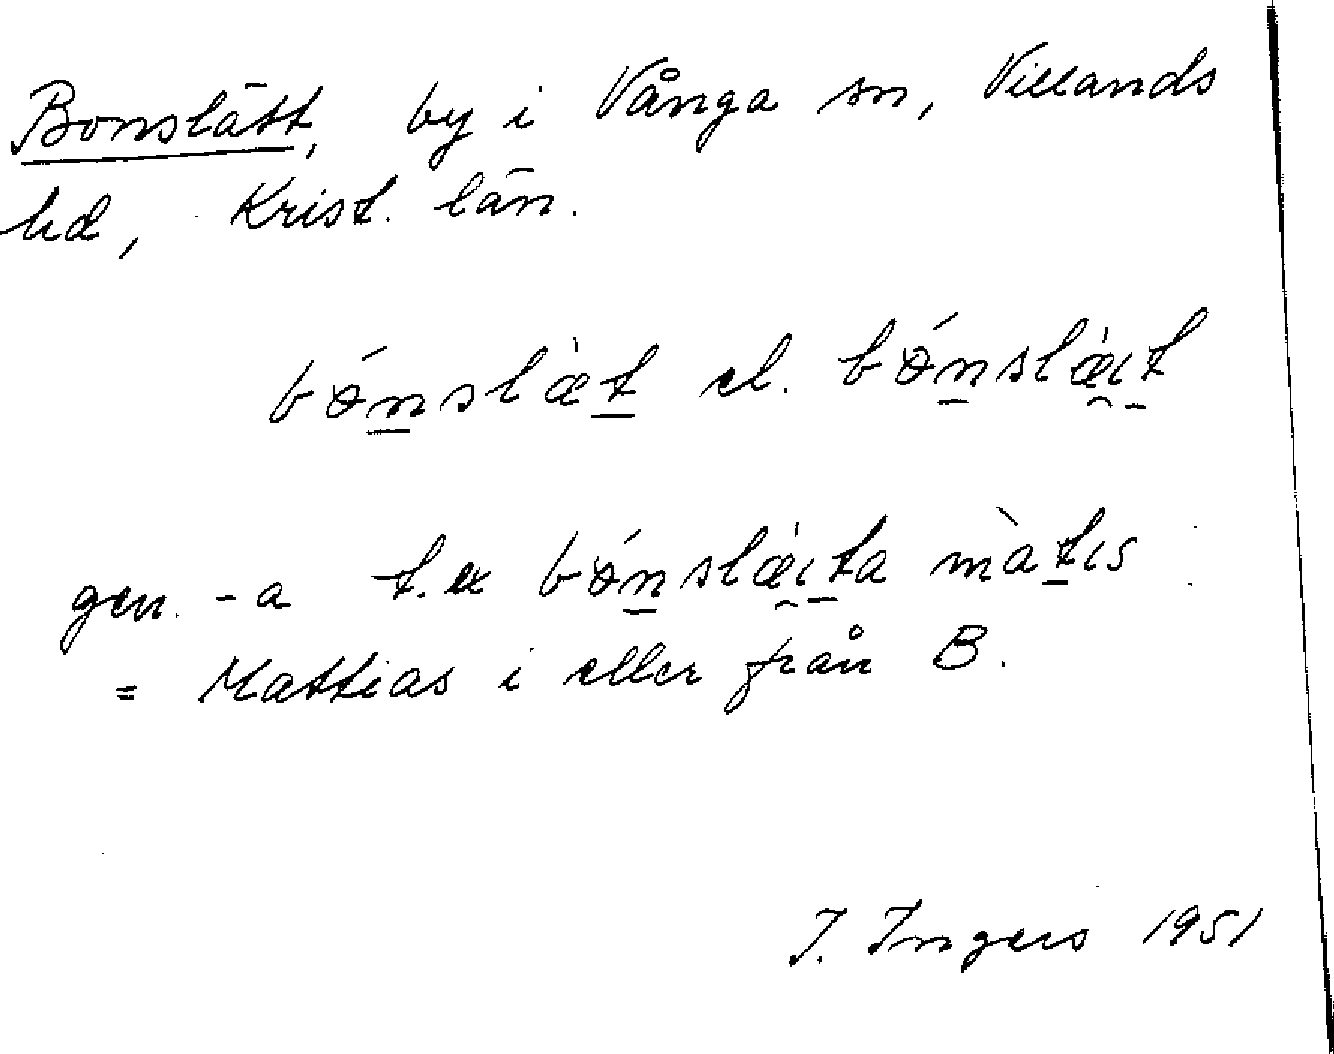 Bonslätt, by i Vånga sn, Villands
hd, Krist. län.
bónslæ̀t el. bónslæ̀ıt
gen. -a t.ex bónslæ̀ıta màtıs
= Mattias i eller från B.
I. Ingers 1951